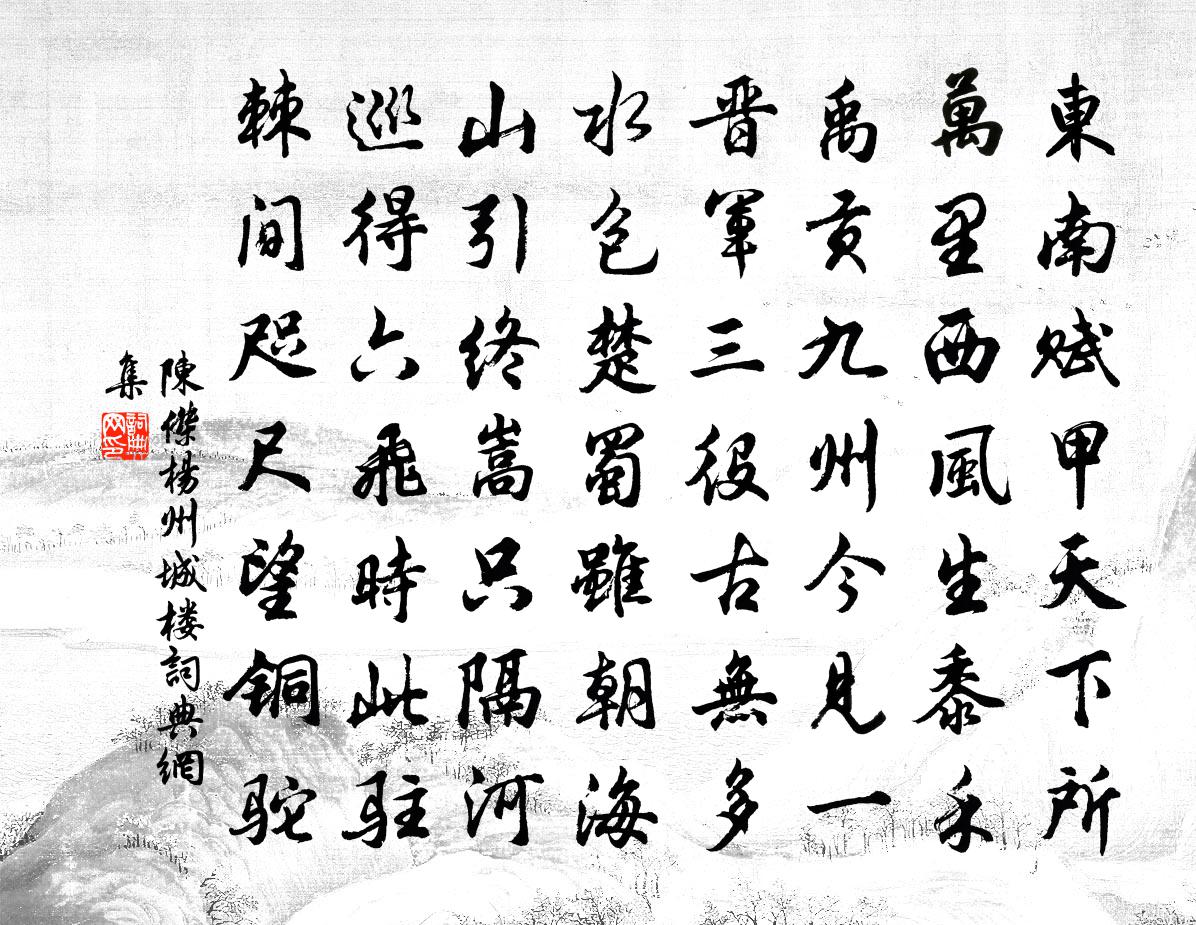 東南賦甲天下所
萬里西風生黍禾
禹貢九州今見一
晋軍三役古無多
水包楚蜀雖朝海
山引终嵩只隔河
巡得六飛時此駐
棘间咫尺望铜驼
陳傑楊州城楼詞典網
集
詞典网印